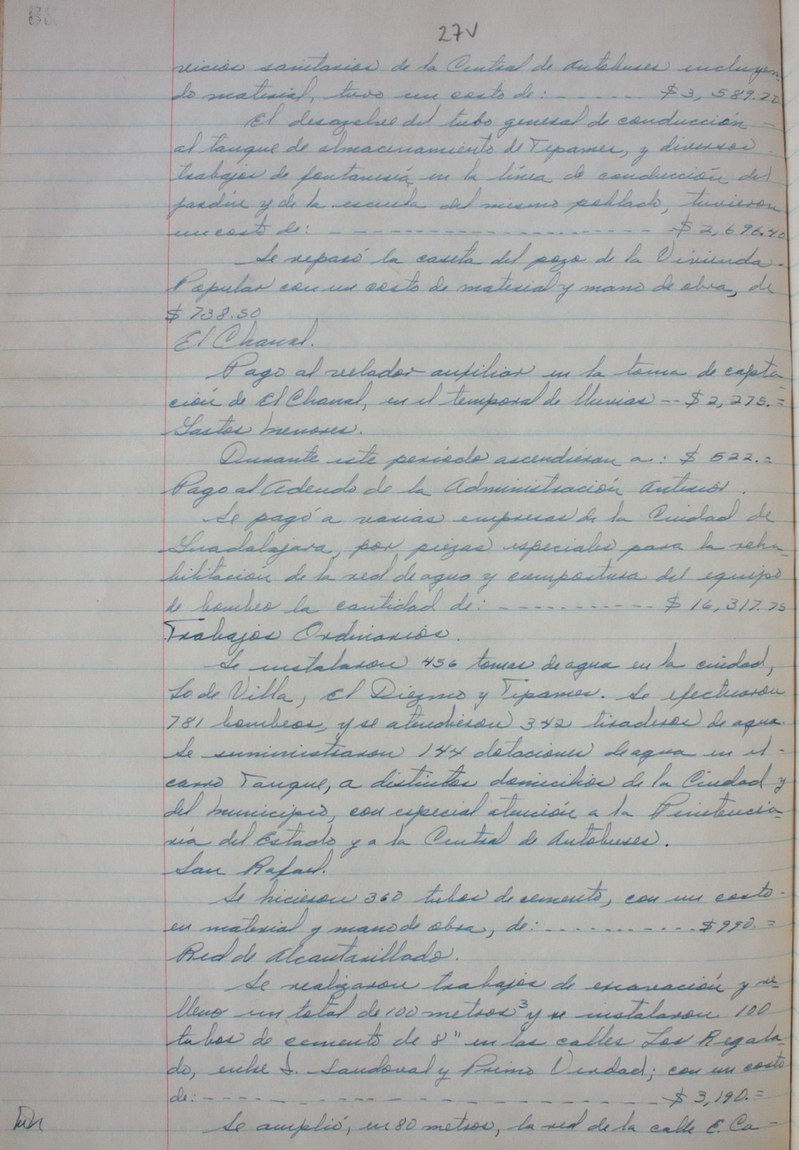 27V
vicios sanitarios de la Central de Autobuses incluyen-
do material, tuvo un costo de: - - - - - $3,589.70
El desazolve del tubo general de conducción =
al tanque de almacenamiento de Tepames, y diversos
trabajos de fontanería, en la línea de conducción del
jardín y de la escuela del mismo poblado, tuvieron
un costo de: - - - - - - - - - - - - - - - - - - $2,696.40
Se reparó la caseta del pozo de la Vivienda -
Popular con un costo de material y mano de obra, de
$738.50
El Chanal.
Pago al velador auxiliar en la toma de capta-
ción de El Chanal, en el temporal de lluvias -- $2,275.=
Gastos Menores.
Durante este período ascendieron a: $522.=
Pago al Adeudo de la Administración Anterior.
Se pagó a varias empresas de la Ciudad de
Guadalajara, por piezas especiales para la reha-
bilitación de la red de agua y compostura del equipo
de bombeo la cantidad de: - - - - - - - - - - - $16,317.75
Trabajos Ordinarios.
Se instalaron 456 tomas de agua en la ciudad,
Lo de Villa, El Diezmo y Tepames. Se efectuaron
781 bombeos, y se atendieron 342 tiraderos de agua.
Se suministraron 144 dotaciones de agua en el -
carro Tanque, a distintos domicilios de la Ciudad y
del Municipio, con especial atención a la Penitencia-
ría del Estado y a la Central de Autobuses.
San Rafael.
Se hicieron 360 tubos de cemento, con un costo-
en material y mano de obra, de: - - - - - - - - - - $990.=
Red de Alcantarillado.
Se realizaron trabajos de excavación y re-
lleno un total de 100 metros³ y se instalaron 100
tubos de cemento de 8" en las calles Los Regala-
do, entre J. Sandoval y Primo Verdad; con un costo
de: - - - - - - - - - - - - - - - - - - - - - - - - - - $3,190.=
Se amplió, en 80 metros, la red de la calle E. Ca-